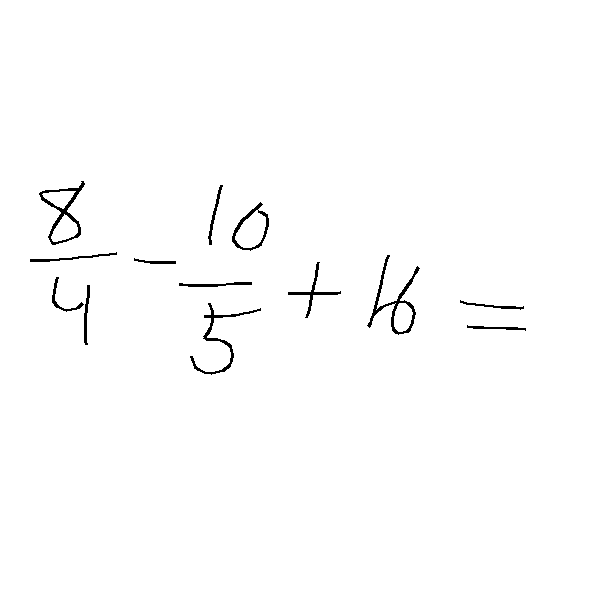 8/4 - 10/5 + 16 =